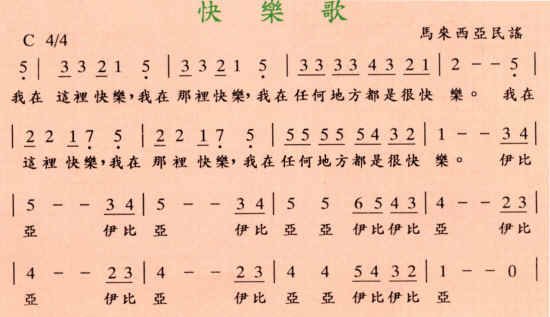 快樂歌
C 4/4 馬來西亞民謠
5 | 3 3 2 1 5 | 3 3 2 1 5 | 3 3 3 3 4 3 2 1 | 2 - - 5 |
我在 這裡快樂,我在 那裡快樂,我在任何地方都是很快 樂。 我在
| 2 2 1 7 5 | 2 2 1 7 5 | 5 5 5 5 5 4 3 2 | 1 - - 3 4 |
這裡 快樂,我在 那裡 快樂,我在任何地方都是很快 樂。 伊比
| 5 - - 3 4 | 5 - - 3 4 | 5 5 6 5 4 3 | 4 - - 2 3 |
亞 伊比 亞 伊比 亞 亞 伊比伊比 亞 伊比
| 4 - - 2 3 | 4 - - 2 3 | 4 4 5 4 3 2 | 1 - - 0 |
亞 伊比 亞 伊比 亞 亞 伊比伊比 亞